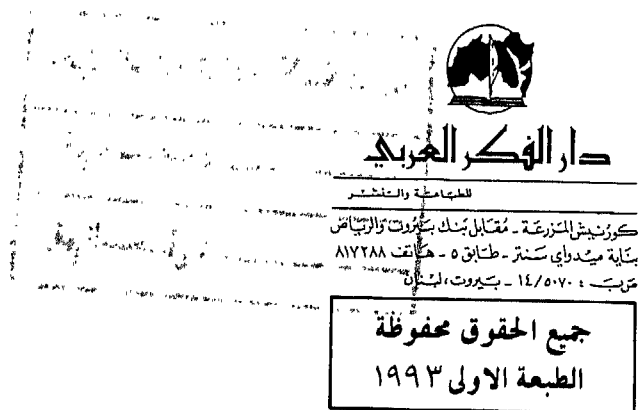 دار الفكر العربي
للطباعة والنشر
كورنيش المزرعة - مقابل بنك بيروت والرياض
بناية ميدواي سنتر - طابق ٥ - هاتف ٨١٧٢٨٨
ص.ب : ١٤/٥٠٧٠ - بيروت، لبنان
جميع الحقوق محفوظة
الطبعة الاولى ١٩٩٣